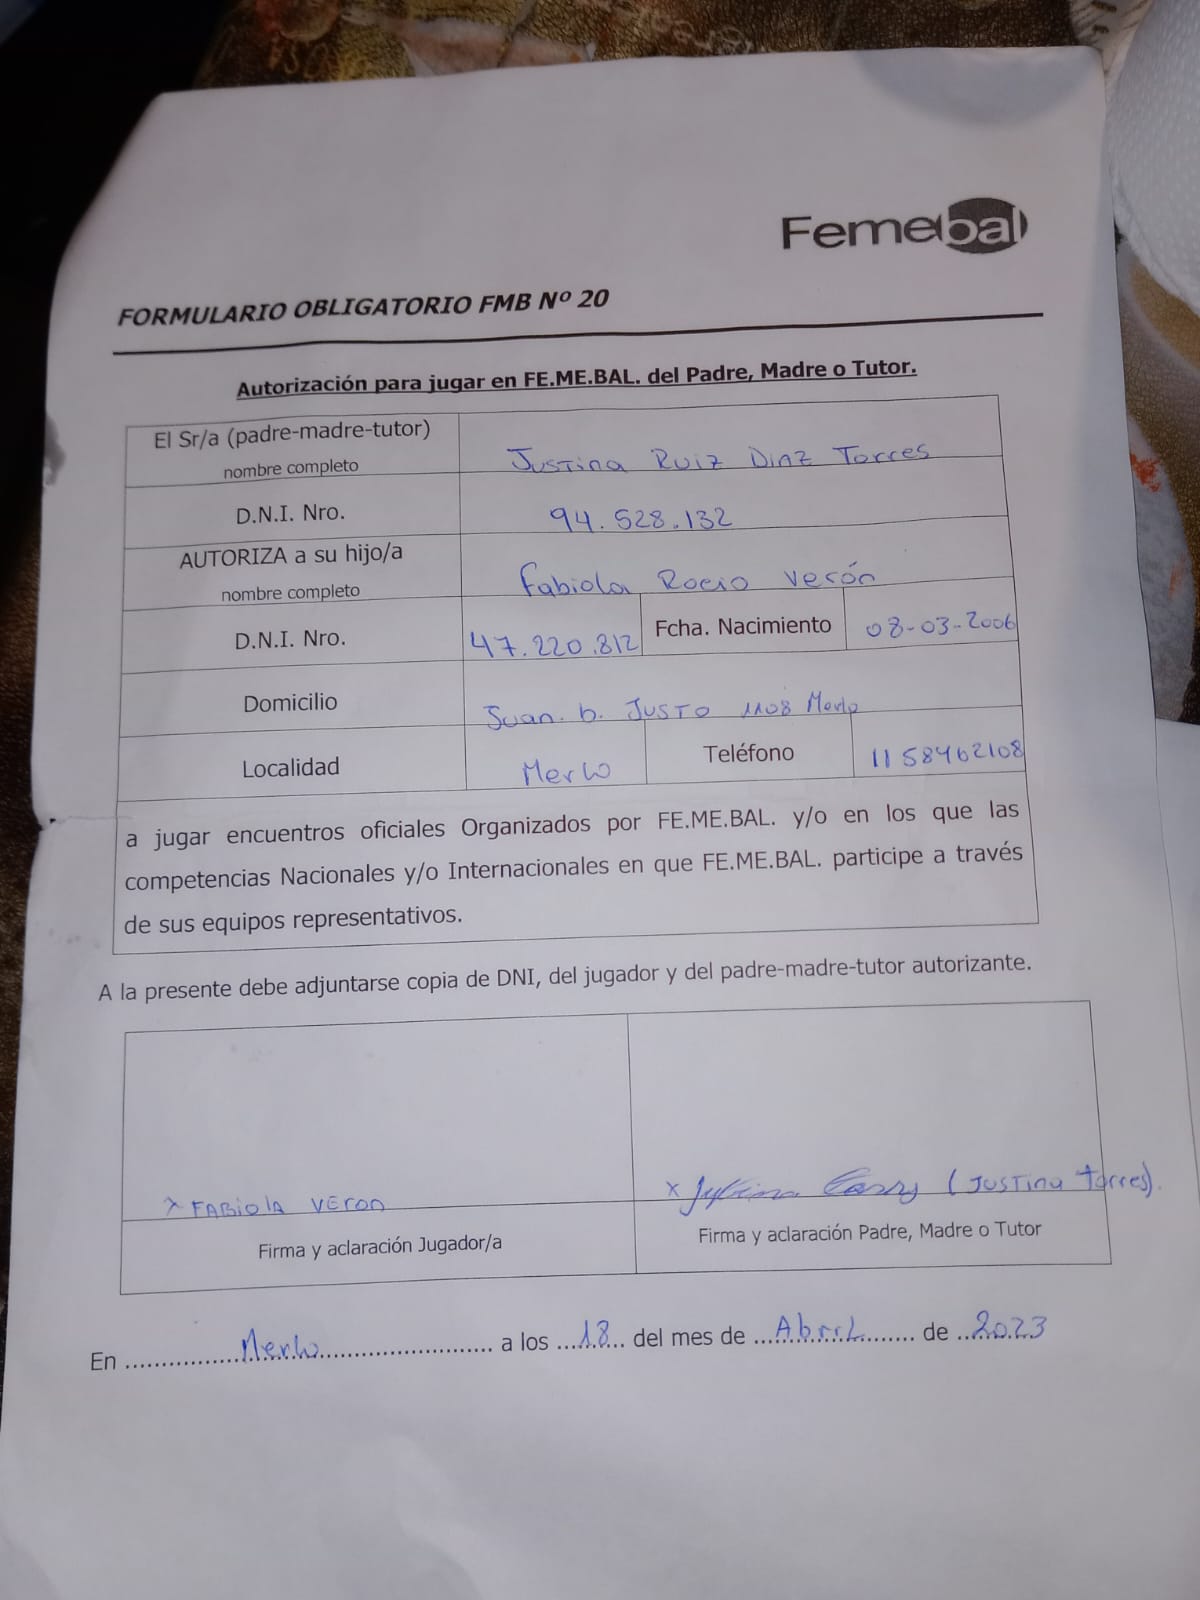 Femebal
FORMULARIO OBLIGATORIO FMB Nº 20
Autorización para jugar en FE.ME.BAL. del Padre, Madre o Tutor.
El Sr/a (padre-madre-tutor)
nombre completo
Justina Ruiz Diaz Torres
D.N.I. Nro.
94.528.132
AUTORIZA a su hijo/a
nombre completo
Fabiola Rocio Verón
D.N.I. Nro.
47.220.812
Fcha. Nacimiento
08-03-2006
Domicilio
Juan. b. Justo 1108 Merlo
Localidad
Merlo
Teléfono
1158462108
a jugar encuentros oficiales Organizados por FE.ME.BAL. y/o en los que las
competencias Nacionales y/o Internacionales en que FE.ME.BAL. participe a través
de sus equipos representativos.
A la presente debe adjuntarse copia de DNI, del jugador y del padre-madre-tutor autorizante.
x FABIOLA VERON
x Justina Torres (Justina Torres).
Firma y aclaración Jugador/a
Firma y aclaración Padre, Madre o Tutor
En ........Merlo........ a los ...18... del mes de ...Abril...... de ..2023